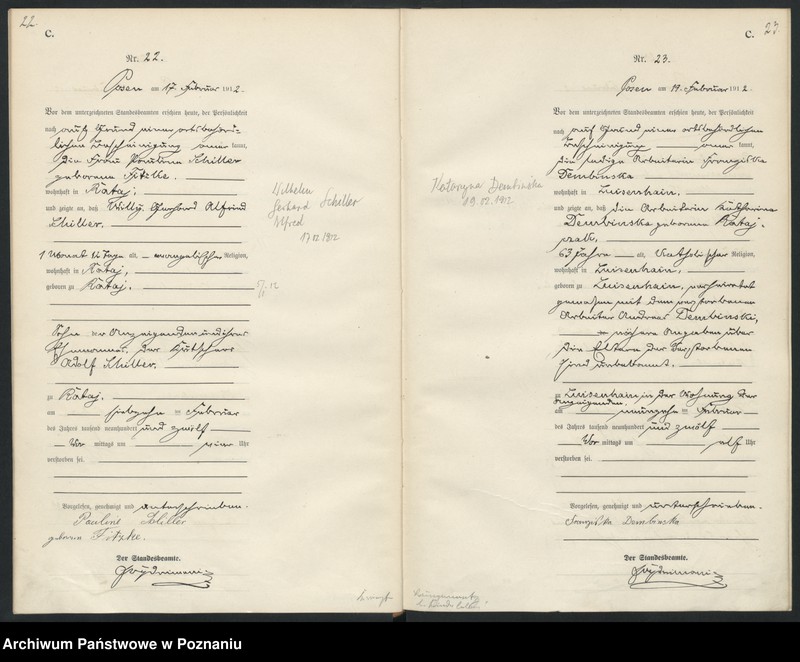 22
C.
Nr. 22.
Posen am 17. Februar 1912.
Vor dem unterzeichneten Standesbeamten erschien heute, der Persönlichkeit
nach auf Grund einer ortsbehörd-
lichen Bescheinigung kannt,
die Frau Pauline Schiller
geborene Fitzke.
wohnhaft in Rataj.
und zeigte an, daß Willy Gerhard Alfried
Schiller.
1 Monat Tage alt, evangelischer Religion,
wohnhaft in Rataj,
geboren zu Rataj.
Sohn der Anzeigenden und ihres
Ehemannes, des Kutschers
Adolf Schiller.
zu Rataj.
am siebzehn ten Februar
des Jahres tausend neunhundert und zwölf
Vor mittags um vier Uhr
verstorben sei.
Vorgelesen, genehmigt und unterschrieben.
Pauline Schiller
geborene Fitzke.
Der Standesbeamte.
Wilhelm
Gerhard Schiller
Alfred
17.02.1912
C.
23.
Nr. 23.
Posen am 19. Februar 1912.
Vor dem unterzeichneten Standesbeamten erschien heute, der Persönlichkeit
nach auf Grund einer ortsbehördlichen
Bescheinigung kannt,
die ledige Arbeiterin Franziska
Dembinska
wohnhaft in Luisenhain.
und zeigte an, daß die Arbeiterin Katharina
Dembinska geborene Rataj-
czak,
63 Jahre alt, katholischer Religion,
wohnhaft in Luisenhain,
geboren zu Luisenhain, verheiratet
gewesen mit dem verstorbenen
Arbeiter Andreas Dembinski,
nähere Angaben über
die Eltern der Verstorbenen
sind unbekannt.
zu Luisenhain, in der Wohnung der
Anzeigenden.
am neunzehn ten Februar
des Jahres tausend neunhundert und zwölf
Vor mittags um elf Uhr
verstorben sei.
Vorgelesen, genehmigt und unterschrieben.
Franziska Dembinska
Der Standesbeamte.
Katarzyna Dembińska
19.02.1912
Archiwum Państwowe w Poznaniu